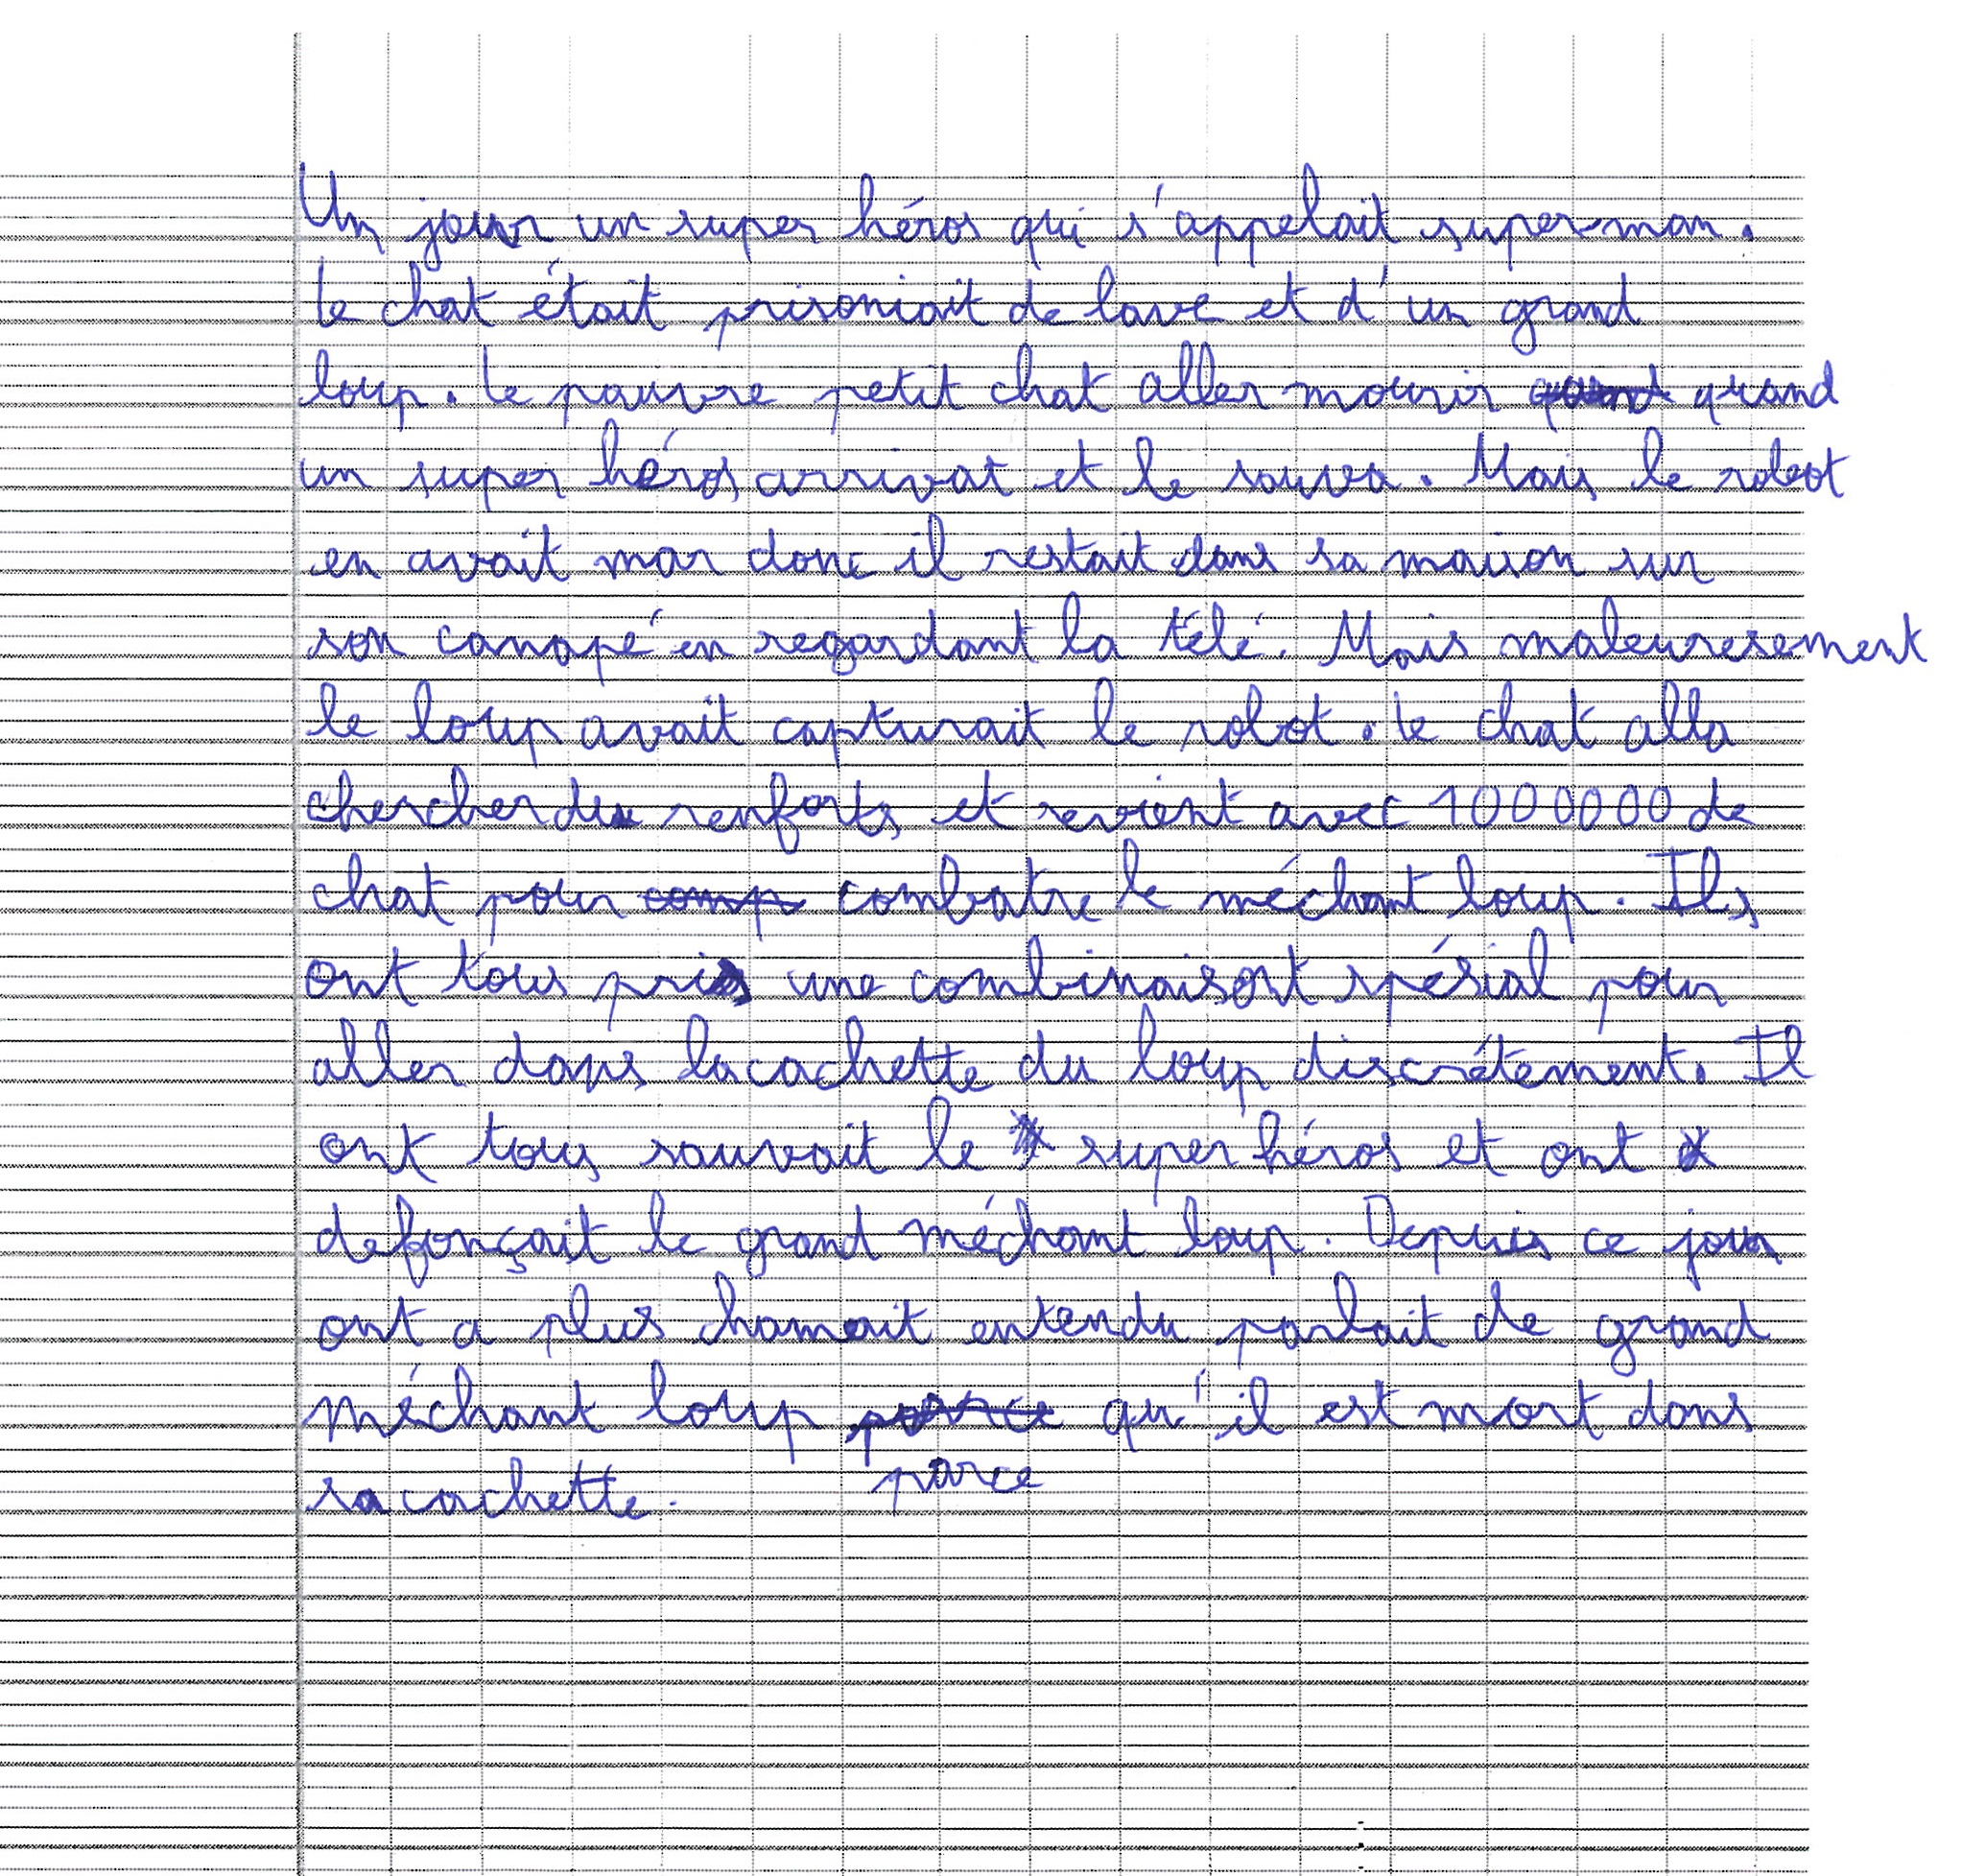 Un jour un super héros qui s'appelait superman.
le chat était prisoniait de lave et d'un grand
loup. le pauvre petit chat aller mourir quand
un super héros arrivat et le sauva. Mais le robot
en avait mar donc il restait dans sa maison sur
son canapé en regardant la télé. Mais maleuresement
le loup avait capturait le robot. le chat alla
chercher des renforts et revient avec 1000000 de
chat pour comp combatre le méchant loup. Ils
ont tous pris une combinaisont spésial pour
aller dans la cachette du loup discrétement. Il
ont tous sauvait le super héros et ont
defonçait le grand méchant loup. Depuis ce jour
ont a plus chamait entendu parlait de grand
méchant loup parce qu'il est mort dans
sa cachette.